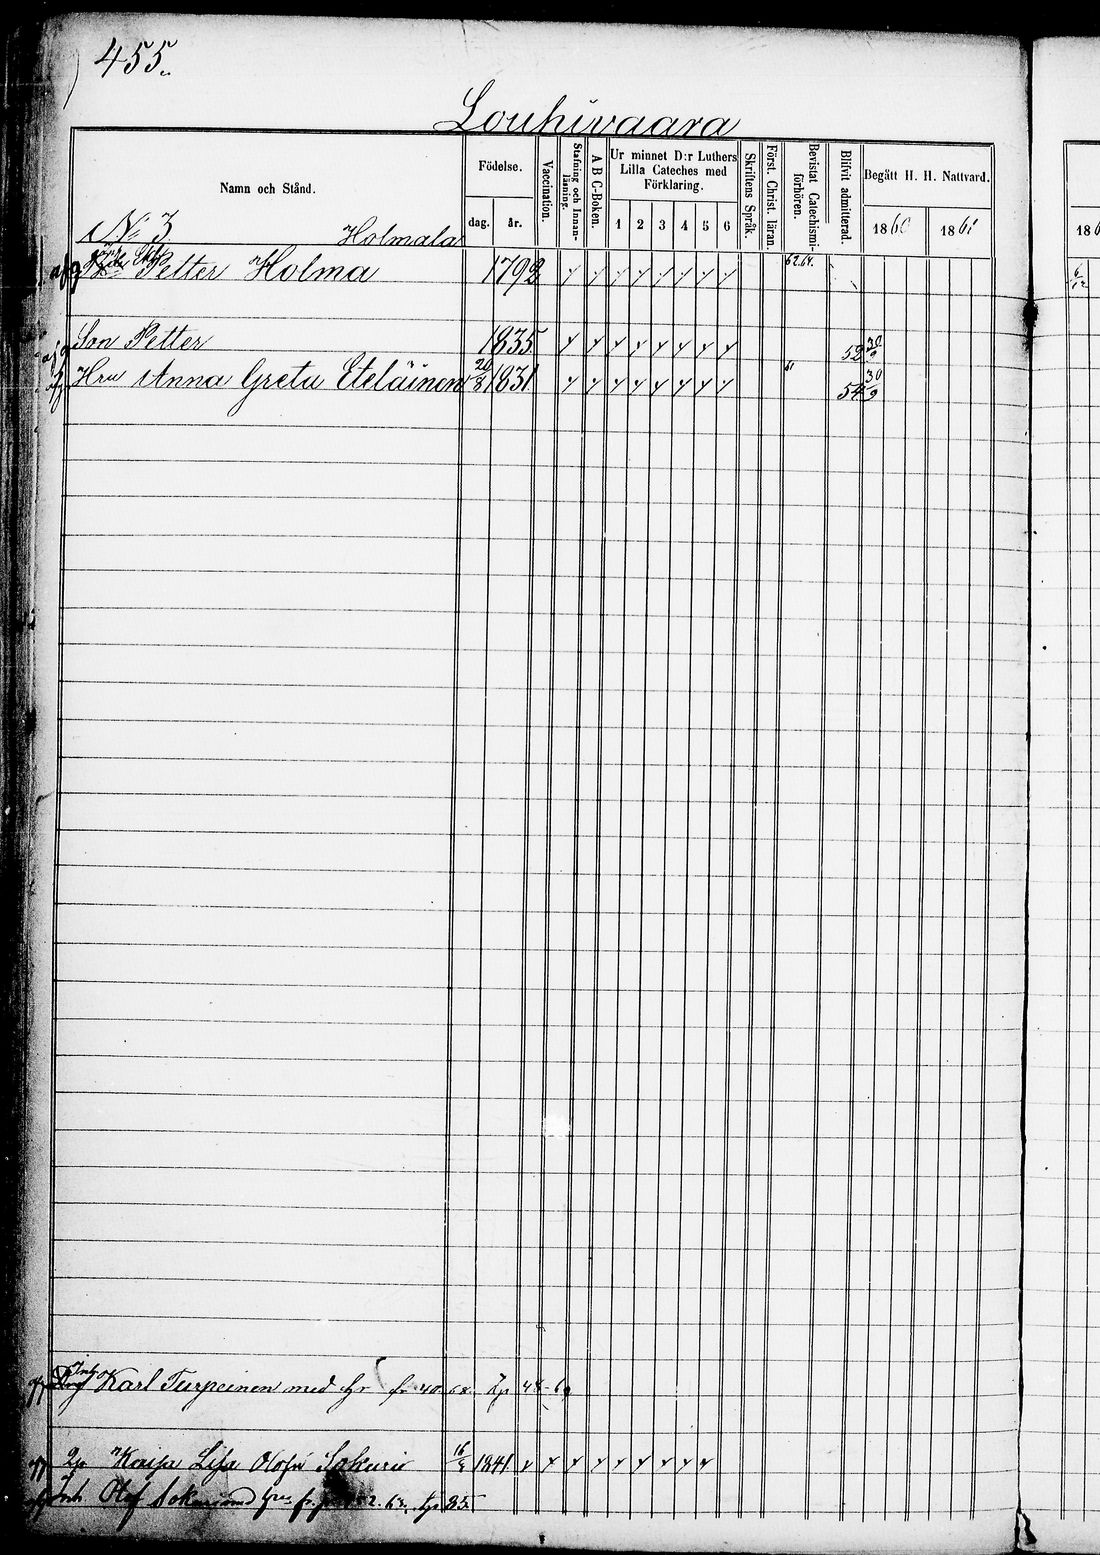 455.
Louhivaara
Namn och Stånd.
Födelse.
dag. år.
Vaccination.
Stafning och Innanläsning.
A B C-Boken.
Ur minnet D:r Luthers Lilla Cateches med Förklaring.
1 2 3 4 5 6
Skriftens Språk.
Först. Christ. läran.
Bevistat Catechismiförhören.
Blifvit admitterad.
Begått H. H. Nattvard.
1860 1861
No 3 Holmala
Petter Holma 1792 62.64.
Son Petter 1835 52 30/9
Hru Anna Greta Eteläinen 20/8 1831 61 54 30/9
Inh Karl Turpeinen med
Kaisa Lisa Olofsr Sokuri 16/3 1841
Inh Olof